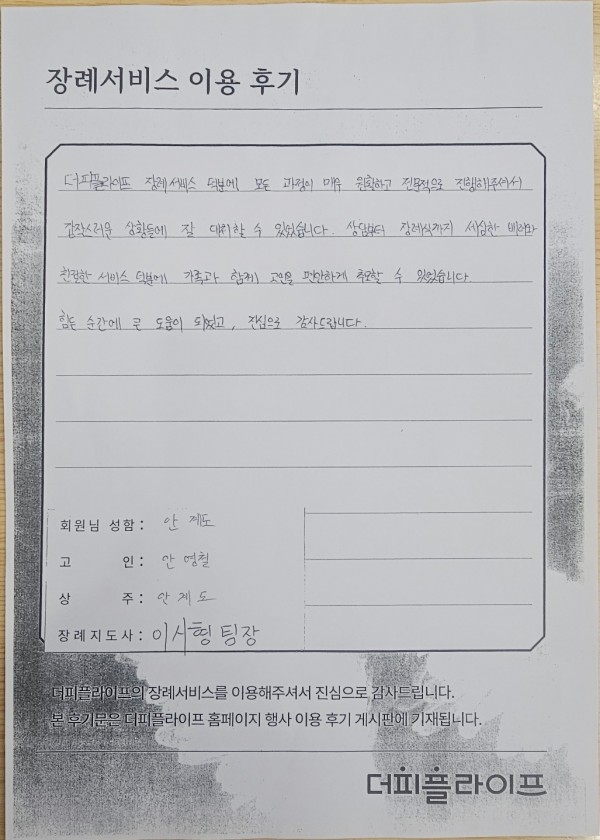 장례서비스 이용 후기
더피플라이프 장례서비스 덕분에 모든 과정이 매우 원활하고 전문적으로 진행해주셔서
갑작스러운 상황들에 잘 대처할 수 있었습니다. 상담부터 장례식까지 세심한 배려와
친절한 서비스 덕분에 가족과 함께 고인을 편안하게 추모할 수 있었습니다.
힘든 순간에 큰 도움이 되었고, 진심으로 감사드립니다.
회원님 성함 : 안제도
고 인 : 안영철
상 주 : 안제도
장례지도사 : 이시형 팀장
더피플라이프의 장례서비스를 이용해주셔서 진심으로 감사드립니다.
본 후기문은 더피플라이프 홈페이지 행사 이용 후기 게시판에 기재됩니다.
더피플라이프